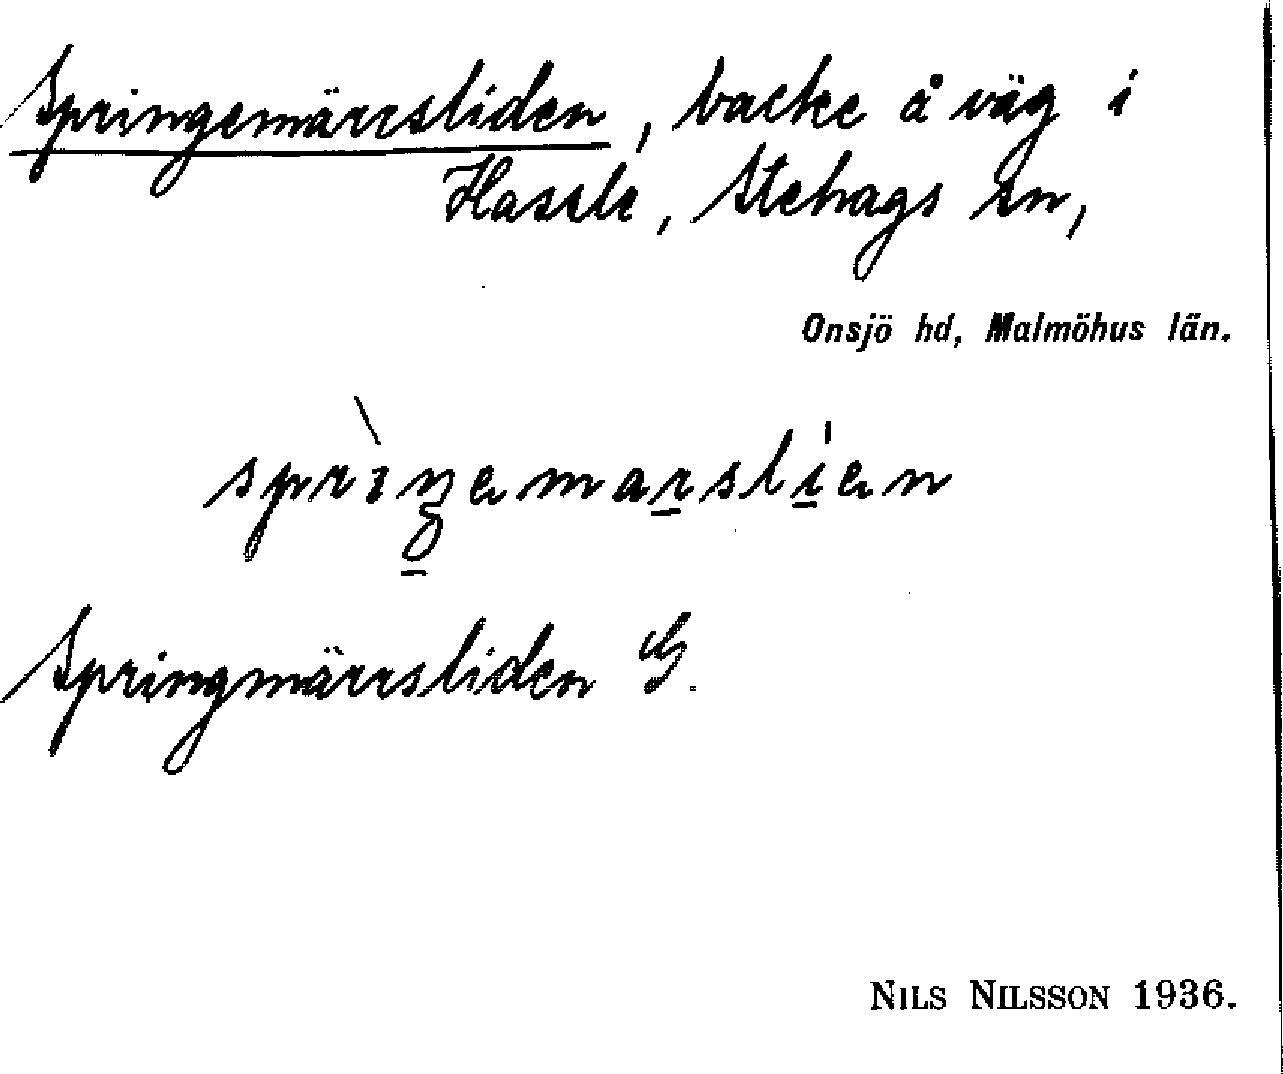 Springemärrsliden, backe å väg i
Hassle, Stehags sn,
Onsjö hd, Malmöhus län.
sprìŋemarslien
Springmärrsliden G.
NILS NILSSON 1936.